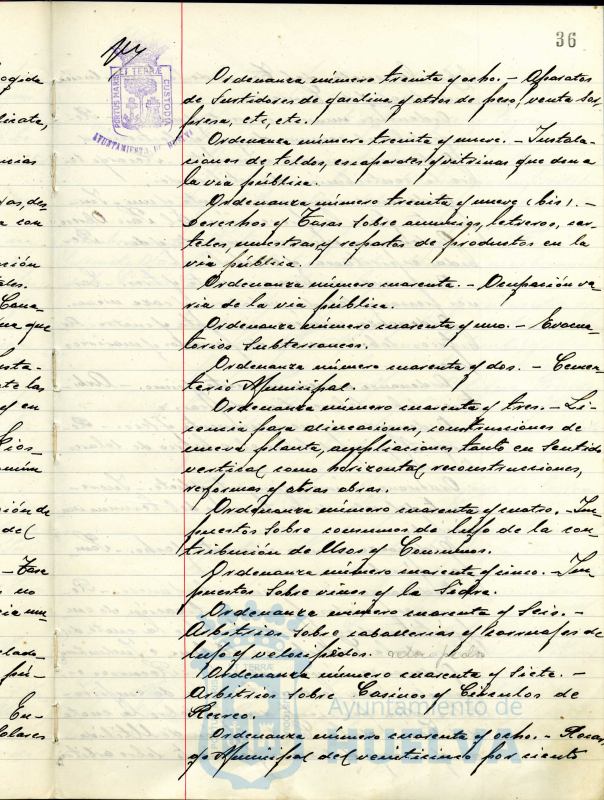 36
PORTUS MARIS ET TERRÆ CUSTODIA
AYUNTAMIENTO DE HUELVA
Ordenanza número treinta y ocho. - Aparatos
de Surtidores de gasolina y otros de peso, venta sor
presa, etc, etc.
Ordenanza número treinta y nueve. - Instala-
ciones de toldos, escaparates y vitrinas que den a
la via pública.
Ordenanza número treinta y nueve (bis). -
Derechos y Tasas sobre anuncios, letreros, car-
teles, muestras y repartos de productos en la
via pública.
Ordenanza número cuarenta. - Ocupación va
ria de la via pública.
Ordenanza número cuarenta y uno. - Evacua
torios Subterraneos.
Ordenanza número cuarenta y dos. - Cemen
terio Municipal.
Ordenanza número cuarenta y tres. - Li
cencia para alineaciones, construcciones de
nueva planta, ampliaciones tanto en Sentido
vertical como horizontal reconstrucciones,
reformas y otras obras.
Ordenanza número cuarenta y cuatro. - Im
puestos Sobre consumos de lujo de la con
tribución de Usos y Consumos.
Ordenanza número cuarenta y cinco. - Im
puestos Sobre vinos y la Sidra.
Ordenanza número cuarenta y Seis. -
Arbitrios Sobre caballerias y carruajes de
lujo y velocipedos. velocipedos
Ordenanza número cuarenta y Siete. -
Arbitrios Sobre Casinos y Circulos de
Recreo.
Ordenanza número cuarenta y ocho. - Recar
go Municipal del veinticinco por ciento
Ayuntamiento de
HUELVA
ogida
ncias
a con
ación
ales.
ma que
y en
ción de
del
- Tasa
s no